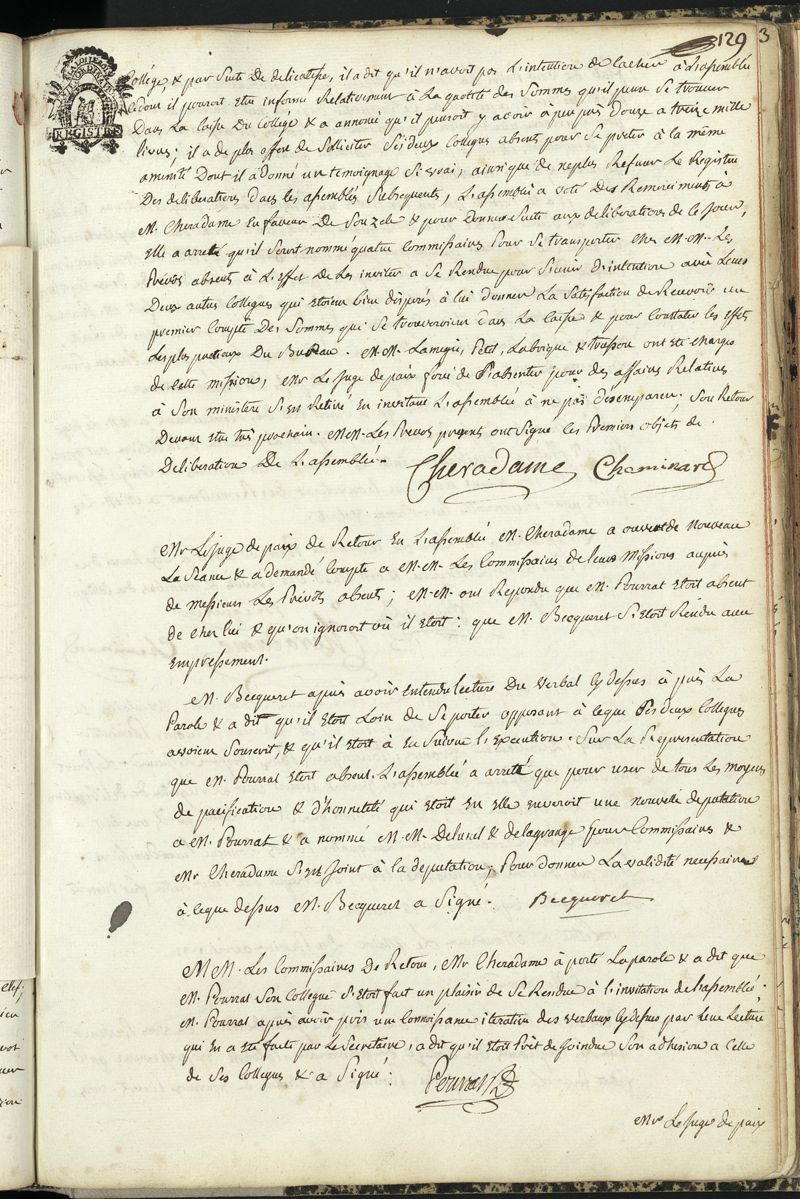 129 3
REGISTRE
Collége, & par suite de delicatesse, il a dit qu'il n'avoit pas l'intention de cacher à l'assemblée
ce dont il pourroit etre informé Relativement à La quotité des Sommes qu'il peut se trouver
Dans La Caisse Du Collége & a annoncé qu'il pouvoit y avoir à peu près Douze a treize mille
livres; il a de plus offert de Solliciter Ses deux Collegues absents pour Se preter à la même
amenité Dont il a donné un temoignage Si vrai, ainsi que de ne plus Refuser Le Registre
Des deliberations dans les assemblés Subsequentes, L'assemblée a voté des Remerciments à
M. Cheradame en faveur De Son zele & pour Donner Suite aux deliberations de ce jour,
Elle a arreté qu'il seroit nommé quatre Commissaires Pour Se transporter chez M.M. Les
Prevots absents à L'effet de Les inviter a Se Rendre pour S'unir d'intention avec Leurs
Deux autres Collegues qui etoient bien disposés à lui donner La Satisfaction de Recevoir un
premier Compte Des Sommes qui Se trouveroient dans La Caisse & pour Constater les effets
Les plus pretieux Du Bureau. M.M. Lamegie, Petit, Labrique & trusson ont été chargés
de cette mission, Mr Le Juge de paix forcé de S'absenter pour des affaires Relatives
à Son ministere S'est Retiré En invitant L'assemblée à ne pas désemparer. Son Retour
Devant etre très prochain. M.M. Les Prevots presents ont Signé les Premiers objets de
Deliberation De L'assemblée. Cheradame Cheminard
Mr Le juge de paix de Retour En L'assemblée M. Cheradame a ouvert de nouveau
La Séance & a demandé Compte a M.M. Les Commissaires de leurs missions auprès
de messieurs Les Prévots absents; M.M. ont Repondu que M. Pourrat Etoit absent
de chez lui & qu'on ignoroit où il etoit: que M. Becqueret S'Etoit Rendu avec
Empressement.
M. Becqueret après avoir Entendu lecture Du verbal cy dessus à pris La
Parole & a dit qu'il Etoit Loin de Se porter opposant à ce que Ses deux Collegues
avoient Souscrit, & qu'il etoit à En Suivre l'Execution. Sur La Representation
que M. Pourrat Etoit absent. L'assemblée a arreté que pour user de tous Les moyens
de pacification & d'honneteté qui etoit En Elle enverroit une nouvelle deputation
a M. Pourrat & a nommé M.M. Delunel & delagrange pour Commissaires &
Mr Cheradame S'est Joint à la deputation; Pour donner La validité necessaire
à ce que dessus M. Becqueret a Signé. Becqueret
M.M. Les Commissaires De Retour, Mr Cheradame à porté La parole & a dit que
M. Pourrat Son Collegue S'Etoit fait un plaisir de Se Rendre à l'invitation de l'assemblée.
M. Pourrat après avoir pris une Connoissance iterative des verbaux cy dessus par Leur Lecture
qui En a eté faite par Le Secretaire, a dit qu'il Etoit Prêt de Joindre Son adhesion a Celle
de Ses Collegues & a Signé: Pourrat
Mr Le juge de paix